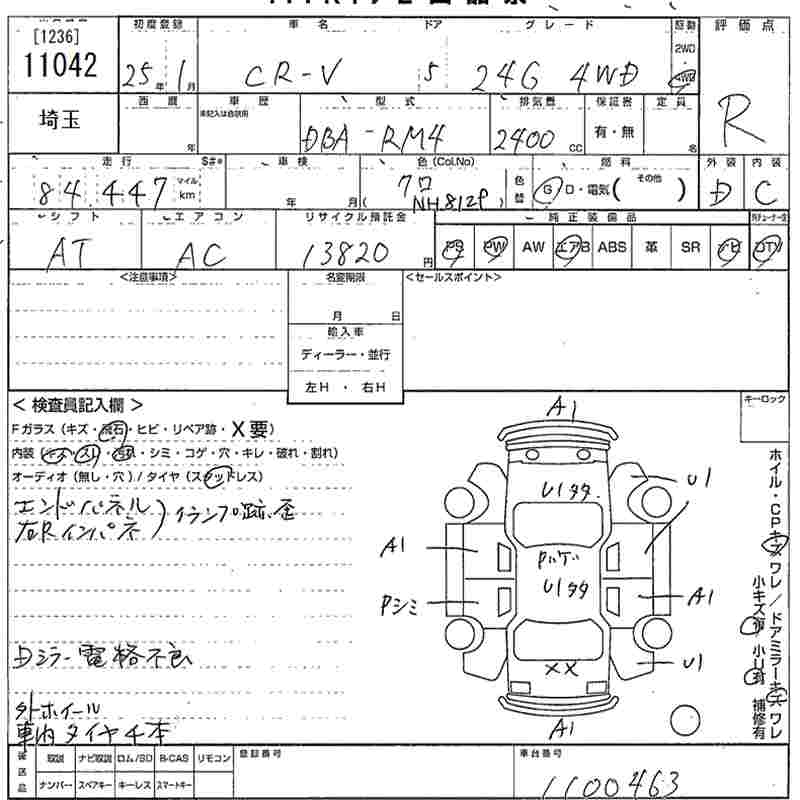 [1236]
11042
初度登録
25年 1月
車名
CR-V
ドア
5
グレード
24G 4WD
駆動
2WD
4WD
評価点
R
埼玉
西暦
年
車歴
未記入は自家用
型式
DBA-RM4
排気量
2400 CC
保証書
有・無
定員
名
走行
$#*
84,447
マイル
km
車検
年 月
色(Col.No)
クロ
(NH812P)
色替
燃料
G D・電気(その他 )
外装
D
内装
C
シフト
AT
エアコン
AC
リサイクル預託金
13820円
純正装備品
PS PW AW エアB ABS 革 SR ナビ
DTV
<注意事項>
名変期限
月 日
輸入車
ディーラー・並行
左H ・ 右H
<セールスポイント>
キーロック
< 検査員記入欄 >
Fガラス (キズ・飛石・ヒビ・リペア跡・X要)
内装 (キズ・スレ・汚れ・シミ・コゲ・穴・キレ・破れ・割れ)
オーディオ (無し・穴) / タイヤ (スタッドレス)
エンドパネル
右Rインパネ
) クランプ跡、歪
Dミラー電格不良
外ホイール
車内タイヤ4本
A1
U1
U1タタ
A1
Pハゲ
U1タタ
Pシミ
A1
XX
U1
A1
ホイル・CPキズワレ/ドアミラーキズワレ
小キズ有 小U有 補修有
確認品
取説 ナビ取説 ロム/SD B-CAS リモコン
ナンバー スペアキー キーレス スマートキー
登録番号
車台番号
1100463